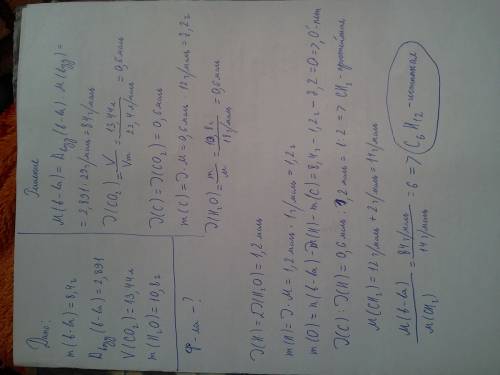 Дано:
m(в-ва) = 8,4г
Dвозд(в-ва) = 2,891
V(CO₂) = 13,44л
m(H₂O) = 10,8г
Ф-ла - ?
Решение
M(в-ва) = Dвозд(в-ва) · M(возд) =
= 2,891 · 29г/моль = 84г/моль
ν(CO₂) = V/Vm = 13,44л / 22,4 л/моль = 0,6моль
ν(C) = ν(CO₂) = 0,6моль
m(C) = ν · M = 0,6моль · 12г/моль = 7,2г
ν(H₂O) = m/M = 10,8г / 18г/моль = 0,6моль
ν(H) = 2ν(H₂O) = 1,2моль
m(H) = ν · M = 1,2моль · 1г/моль = 1,2г
m(O) = m(в-ва) - m(H) - m(C) = 8,4г - 1,2г - 7,2 = 0 => O - нет
ν(C) : ν(H) = 0,6моль : 1,2моль = 1 : 2 => CH₂ - простейшая
M(CH₂) = 12г/моль + 2г/моль = 14г/моль
M(в-ва) / M(CH₂) = 84г/моль / 14г/моль = 6 => C₆H₁₂ - истинная